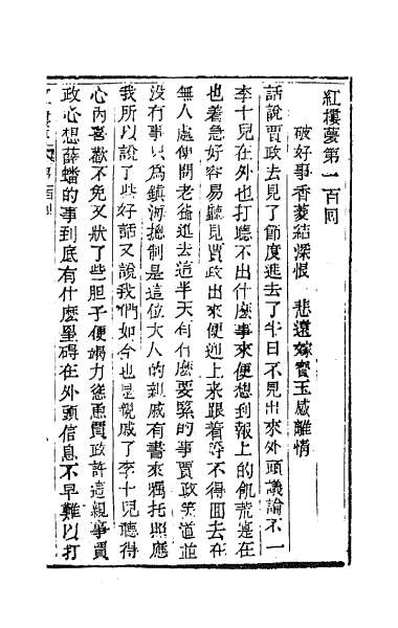 紅樓夢第一百囘
破好事香菱結深恨　悲遠嫁寶玉感離情
話說賈政去見了節度進去了半日不見出來外頭議論不一
李十兒在外也打聽不出什麼事來便想到報上的飢荒實在
也着急好容易聽見賈政出來便迎上來跟着等不得囬去在
無人處便問老爺進去這半天有什麼要緊的事賈政笑道並
沒有事只為鎮海總制是這位大人的親戚有書來囑托照應
我所以說了些好話又說我們如今也是親戚了李十兒聽得
心內喜歡不免又壯了些胆子便竭力慫恿賈政許這親事賈
政心想薛蟠的事到底有什麼罣碍在外頭信息不早難以打